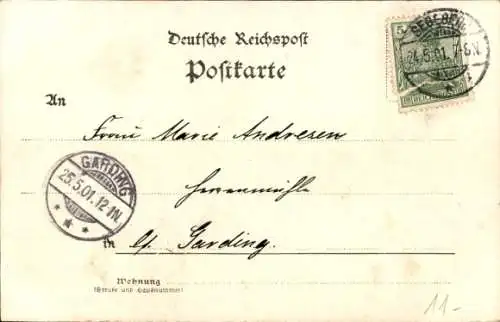 Deutsche Reichspost
Postkarte
5
24.5.01. 7-8N.
An
Frau Marie Andresen
GARDING
25.5.01. 12-1N.
Herrenmühle
in b/ Garding.
Wohnung
(Straße und Hausnummer)
11-